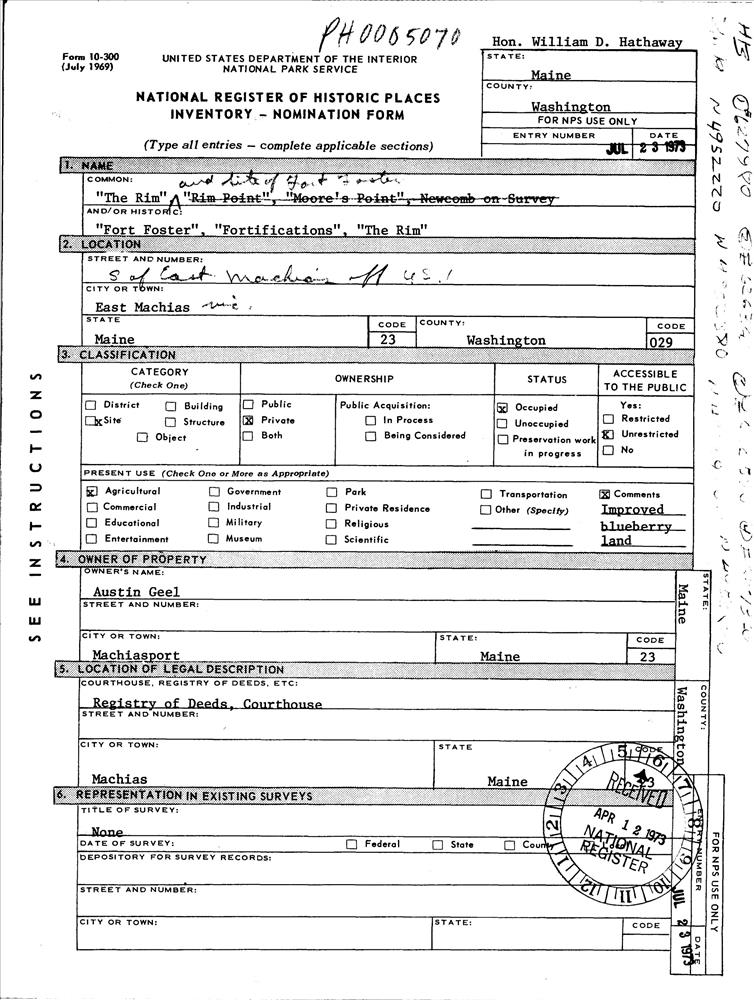 PH0005070
Hon. William D. Hathaway
Form 10-300
(July 1969)
UNITED STATES DEPARTMENT OF THE INTERIOR
NATIONAL PARK SERVICE
NATIONAL REGISTER OF HISTORIC PLACES
INVENTORY - NOMINATION FORM
(Type all entries – complete applicable sections)
STATE:
Maine
COUNTY:
Washington
FOR NPS USE ONLY
ENTRY NUMBER DATE
JUL 23 1973
1. NAME
COMMON:
and Site of Fort Foster
"The Rim" "Rim Point", "Moore's Point", Newcomb on Survey
AND/OR HISTORIC:
"Fort Foster", "Fortifications", "The Rim"
2. LOCATION
STREET AND NUMBER:
S of East Machias off US 1
CITY OR TOWN:
East Machias
STATE CODE COUNTY: CODE
Maine 23 Washington 029
3. CLASSIFICATION
CATEGORY
(Check One)
OWNERSHIP
STATUS
ACCESSIBLE
TO THE PUBLIC
District Building
x Site Structure
Object
Public
x Private
Both
Public Acquisition:
In Process
Being Considered
x Occupied
Unoccupied
Preservation work
in progress
Yes:
Restricted
x Unrestricted
No
PRESENT USE (Check One or More as Appropriate)
x Agricultural Government Park Transportation x Comments
Commercial Industrial Private Residence Other (Specify) Improved
Educational Military Religious blueberry
Entertainment Museum Scientific land
4. OWNER OF PROPERTY
OWNER'S NAME:
Austin Geel
STREET AND NUMBER:
CITY OR TOWN: STATE: CODE
Machiasport Maine 23
5. LOCATION OF LEGAL DESCRIPTION
COURTHOUSE, REGISTRY OF DEEDS, ETC:
Registry of Deeds, Courthouse
STREET AND NUMBER:
CITY OR TOWN: STATE CODE
Machias Maine 23
6. REPRESENTATION IN EXISTING SURVEYS
TITLE OF SURVEY:
None
DATE OF SURVEY: Federal State County Local
DEPOSITORY FOR SURVEY RECORDS:
STREET AND NUMBER:
CITY OR TOWN: STATE: CODE
SEE INSTRUCTIONS
STATE:
Maine
COUNTY:
Washington
ENTRY NUMBER
DATE
FOR NPS USE ONLY
JUL 23 1973
RECEIVED
APR 12 1973
NATIONAL
REGISTER
1 2 3 4 5 6 7 8 9 10 11 12